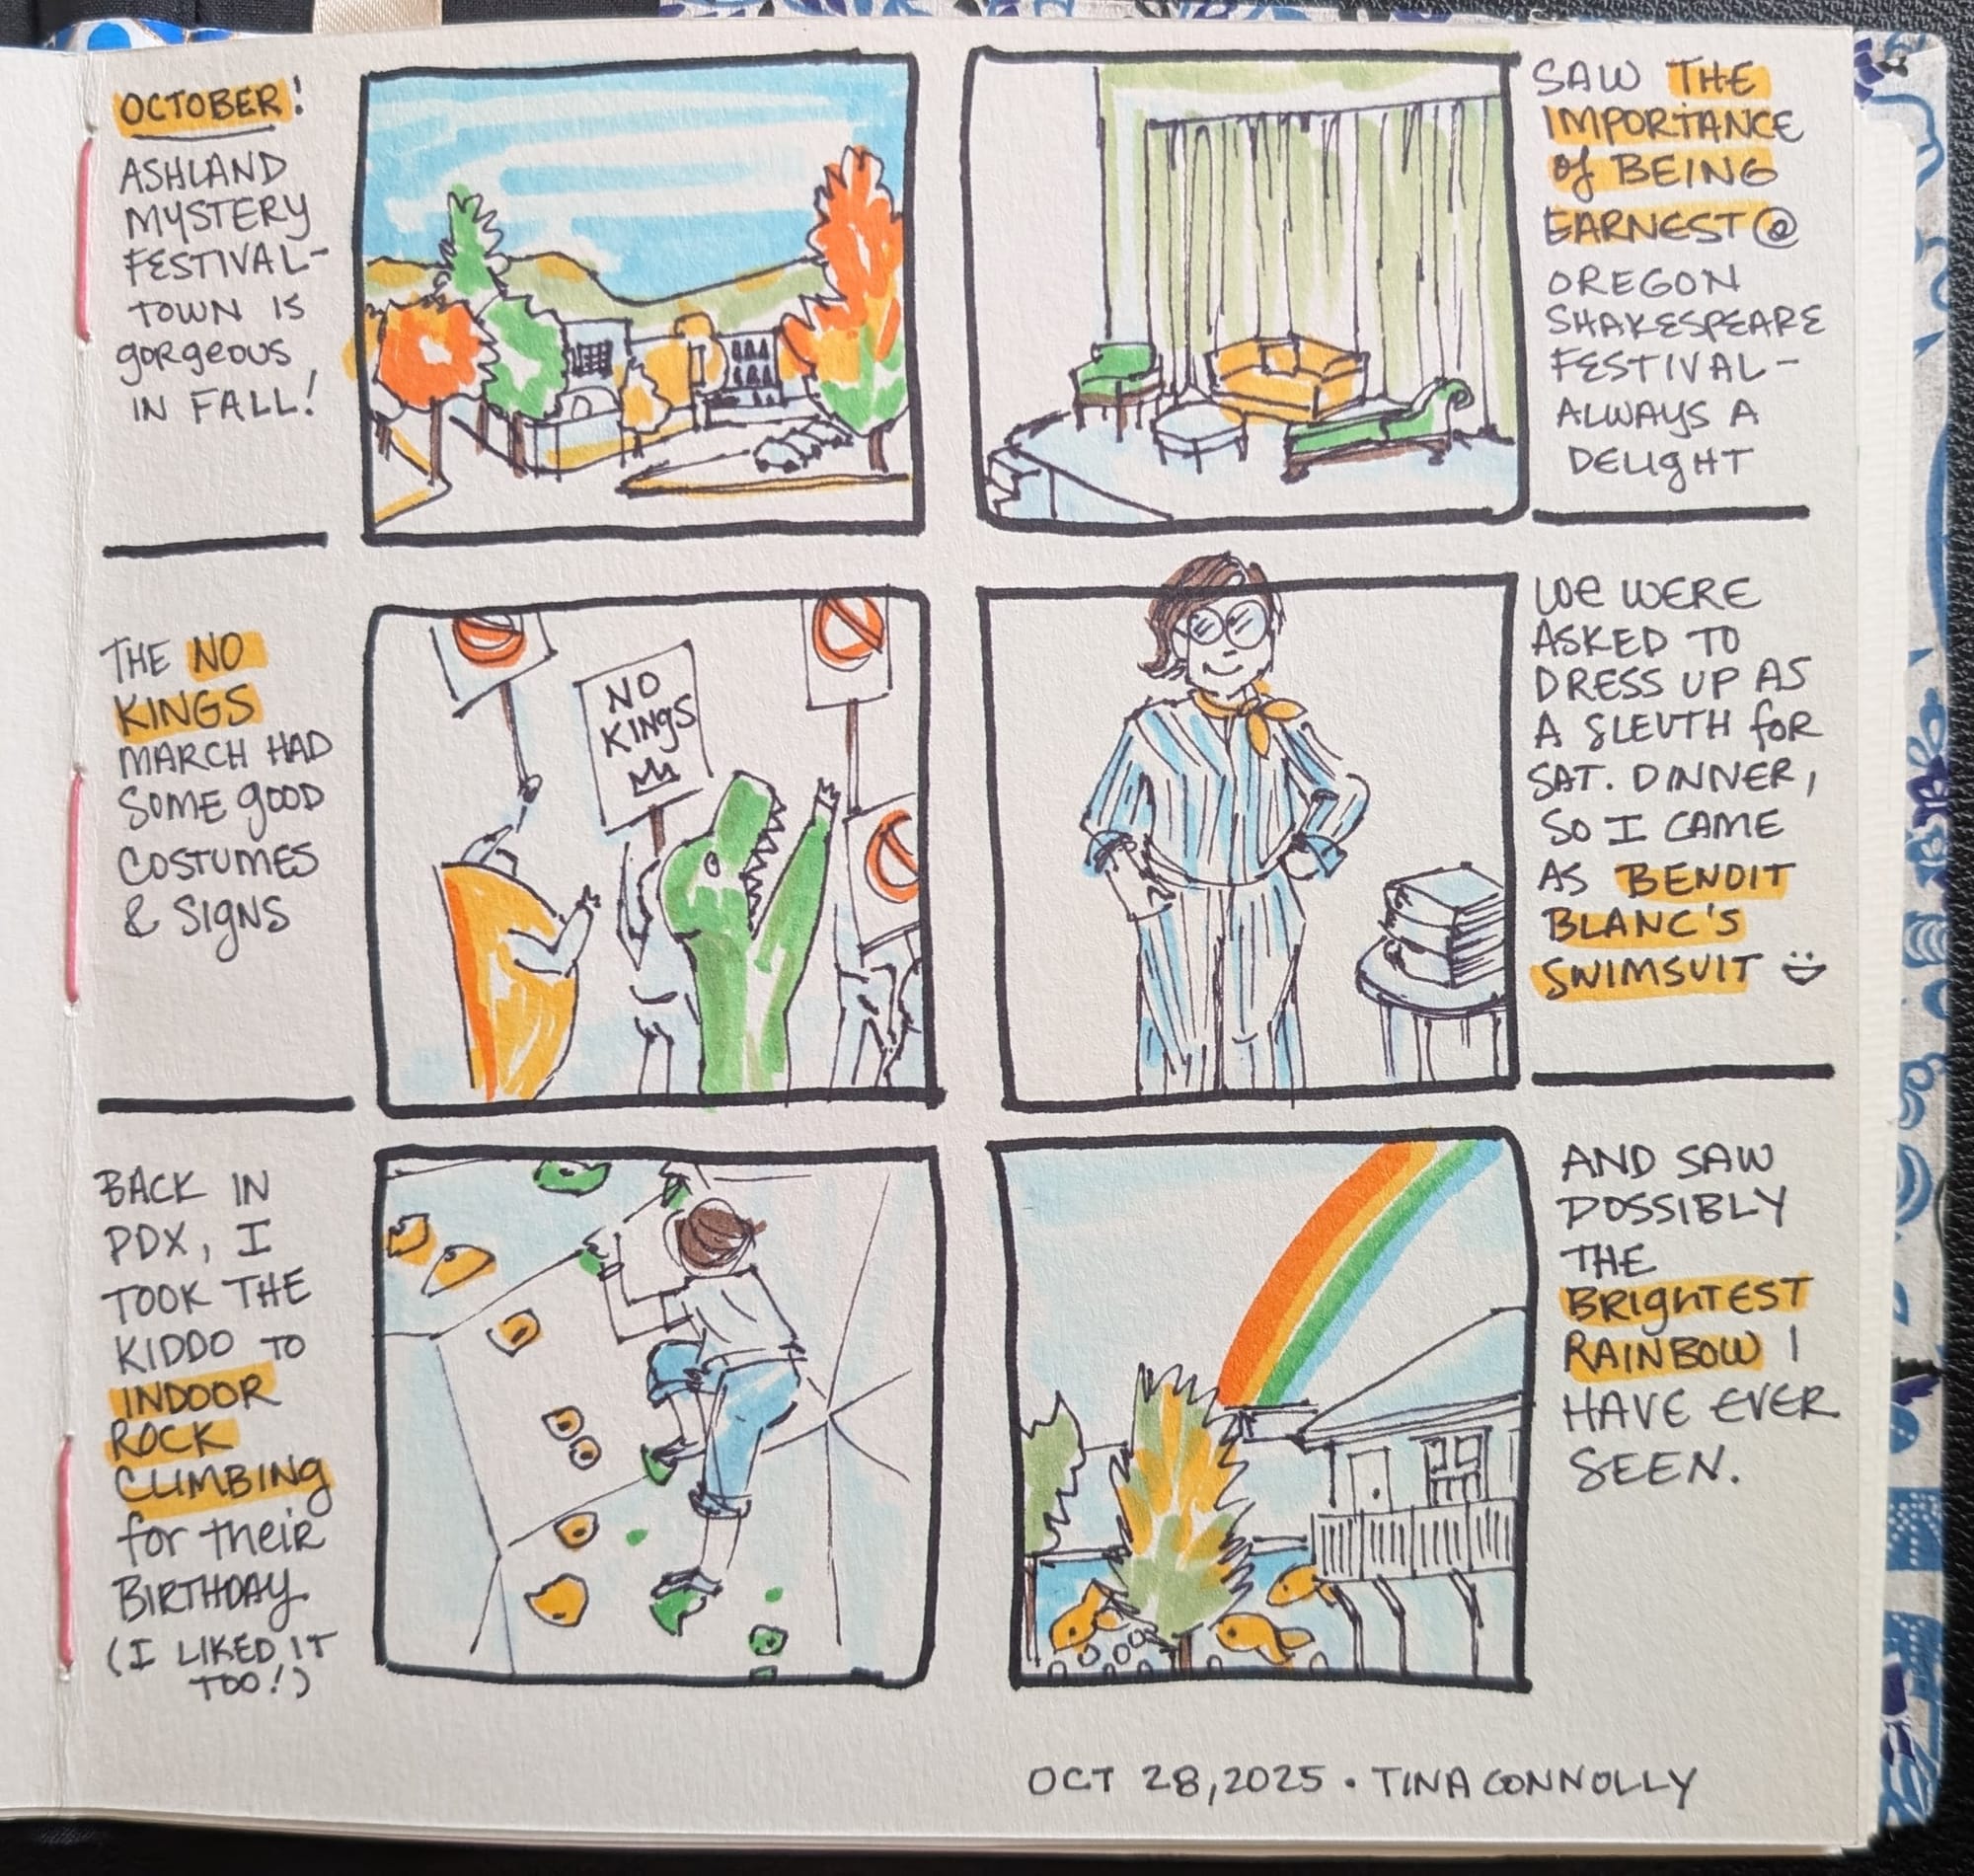 OCTOBER!
ASHLAND
MYSTERY
FESTIVAL-
TOWN IS
gorgeous
IN FALL!
SAW THE
IMPORTANCE
of BEING
EARNEST @
OREGON
SHAKESPEARE
FESTIVAL-
ALWAYS A
DELIGHT
THE NO
KINGS
MARCH HAD
SOME GOOD
COSTUMES
& SIGNS
NO
KINGS
WE WERE
ASKED TO
DRESS UP AS
A SLEUTH for
SAT. DINNER,
SO I CAME
AS BENOIT
BLANC'S
SWIMSUIT
BACK IN
PDX, I
TOOK THE
KIDDO TO
INDOOR
ROCK
CLIMBING
for their
BIRTHDAY.
(I LIKED IT
TOO!)
AND SAW
POSSIBLY
THE
BRIGHTEST
RAINBOW I
HAVE EVER
SEEN.
OCT 28, 2025 • TINA CONNOLLY